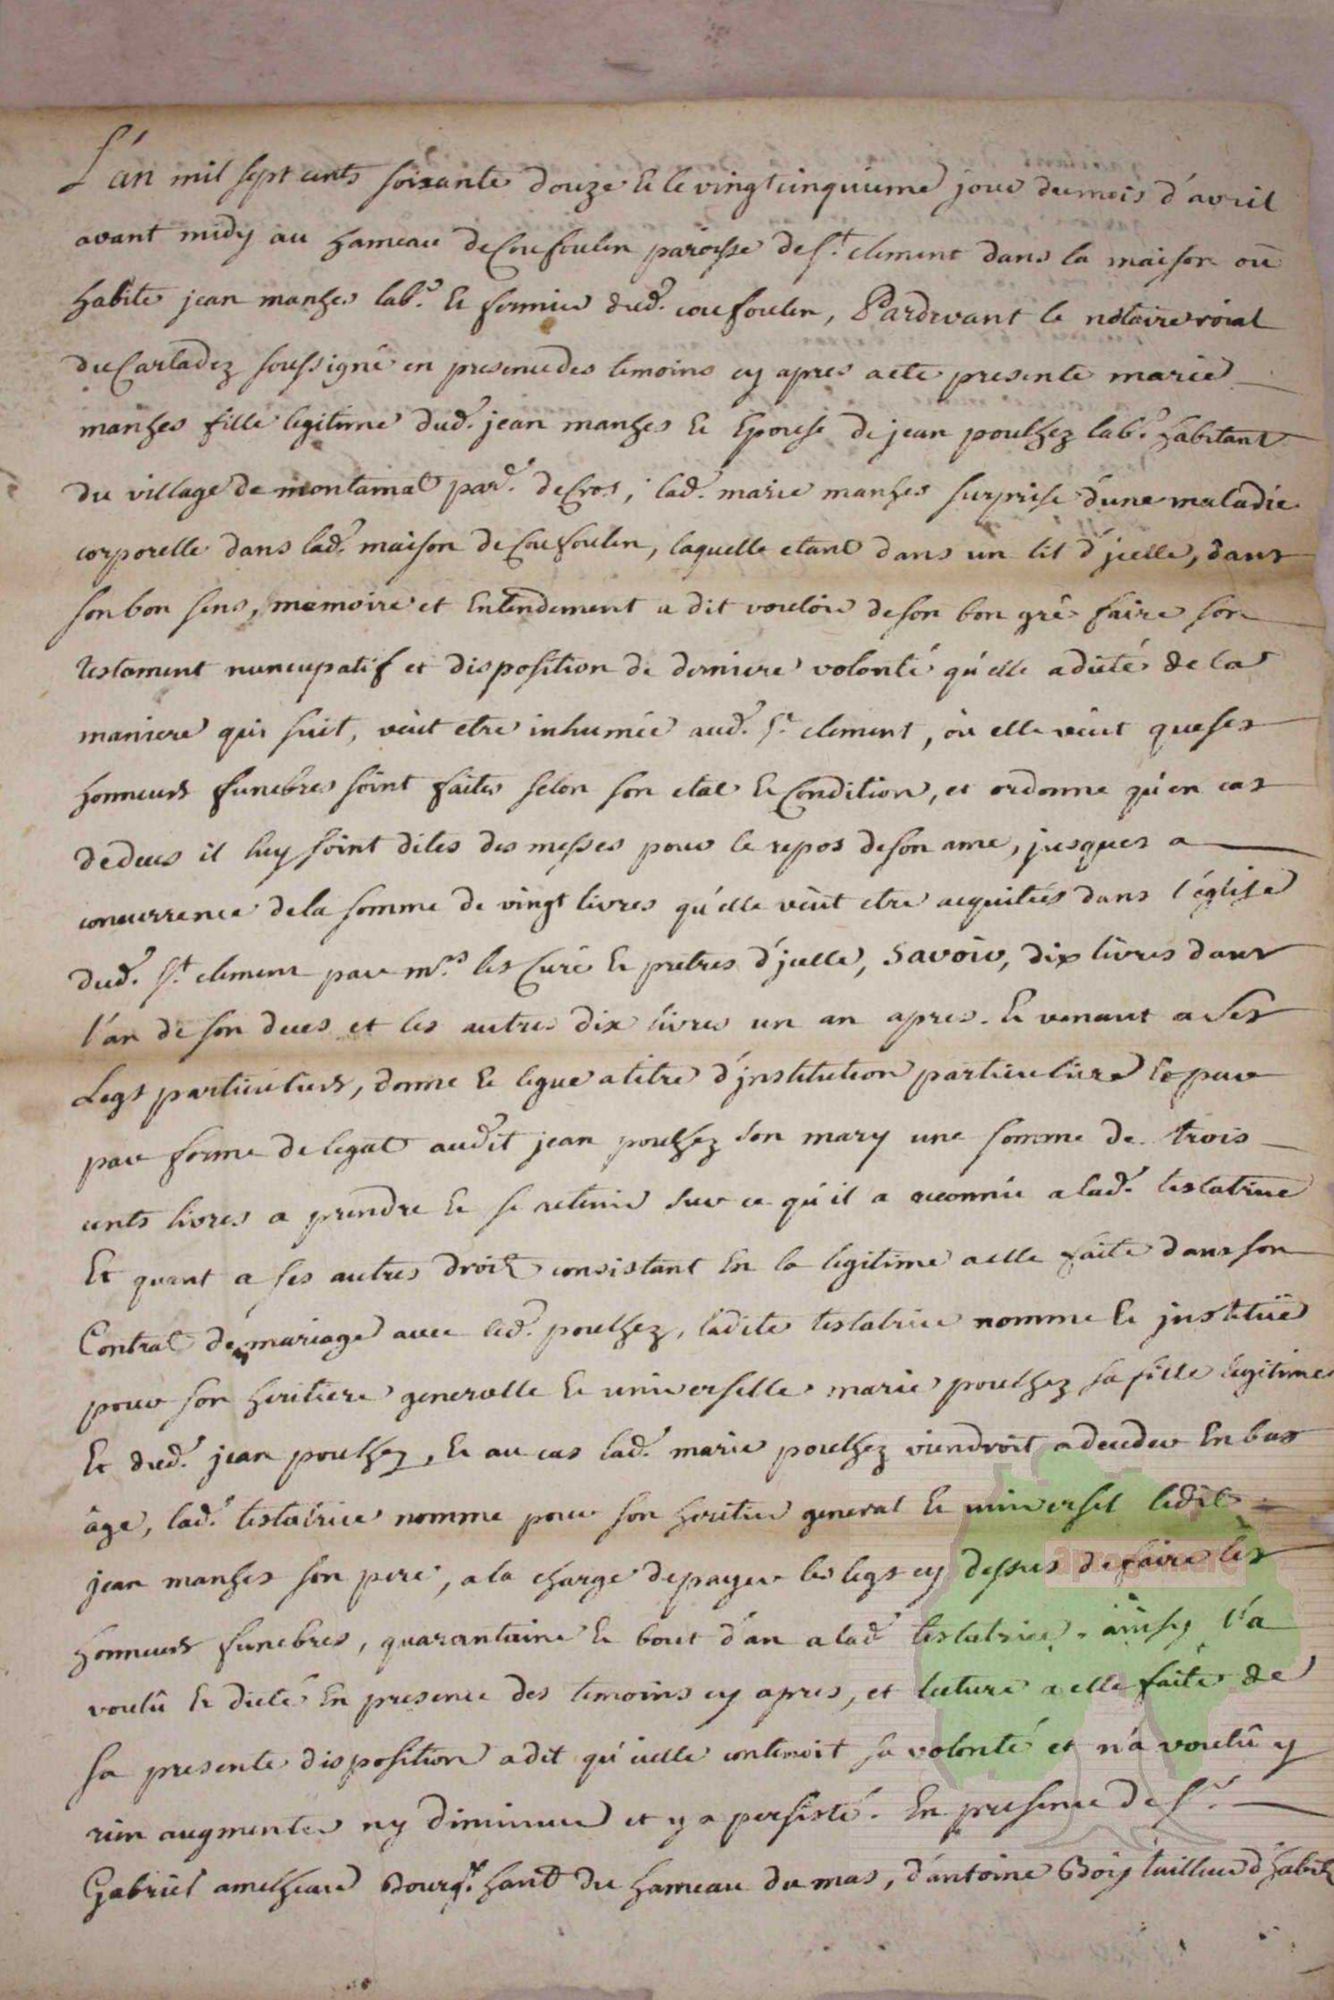 L'an mil sept cents soixante douze & le vingtcinquieme jour du mois d'avril
avant midy au hameau de Coufoulen paroisse de St. clement dans la maison où
habite jean manhes labr. & fermier dud. coufoulen, Pardevant le notaire roial
du Carladez soussigné en presence des temoins cy apres a eté presente marie
manhes fille legitime dud. jean manhes & Epouse de jean poulhez labr. habitant
du village de montamat par. de Cros, lad. marie manhes surprise d'une maladie
corporelle dans lad. maison de Coufoulen, laquelle etant dans un lit d'jcelle, dans
son bon sens, memoire et Entendement a dit vouloir de son bon gré faire son
testament nuncupatif et disposition de derniere volonté qu'elle a dicté de la
maniere qui suit, veut etre inhumée aud. St. clement, où elle veut que ses
honneurs funebres soint faites selon son etat & Condition, et ordonne qu'en cas
de deces il luy soint dites des messes pour le repos de son ame, jusques a
concurrence de la somme de vingt livres qu'elle veut etre acquitées dans l'église
dud. St. clement par mrs. les Curé & pretres d'jcelle, Savoir, dix livres dans
l'an de son deces et les autres dix livres un an apres. & venant a ses
Legs particuliers, donne & legue a titre d'jnstitution particuliere & par
par forme de legat audit jean poulhez son mary une somme de trois
cents livres a prendre & se retenir sur ce qu'il a reconnu a lad. testatrice
Et quant a ses autres droits consistant En la legitime a elle faite dans son
Contrat de mariage avec led. poulhez, ladite testatrice nomme & jnstitue
pour son heritiere generalle & universelle marie poulhez sa fille legitime
Et dud. jean poulhez, & au cas lad. marie poulhez viendroit a deceder En bas
âge, lad. testatrice nomme pour son heritier general & universel ledit
jean manhes son pere, a la charge de payer les legs cy dessus de faire les
honneurs funebres, quarantaine & bout d'an a lad. testatrice. ainsy l'a
voulû & dicté En presence des temoins cy apres, et lecture a elle faite de
sa presente disposition a dit qu'icelle contenoit sa volonté et n'a voulû y
rien augmenter ny diminuer et y a persisté. En presence de Sr.
Gabriel amelheau Bourgs. hant. du hameau du mas, d'antoine Bois tailleur d'habits